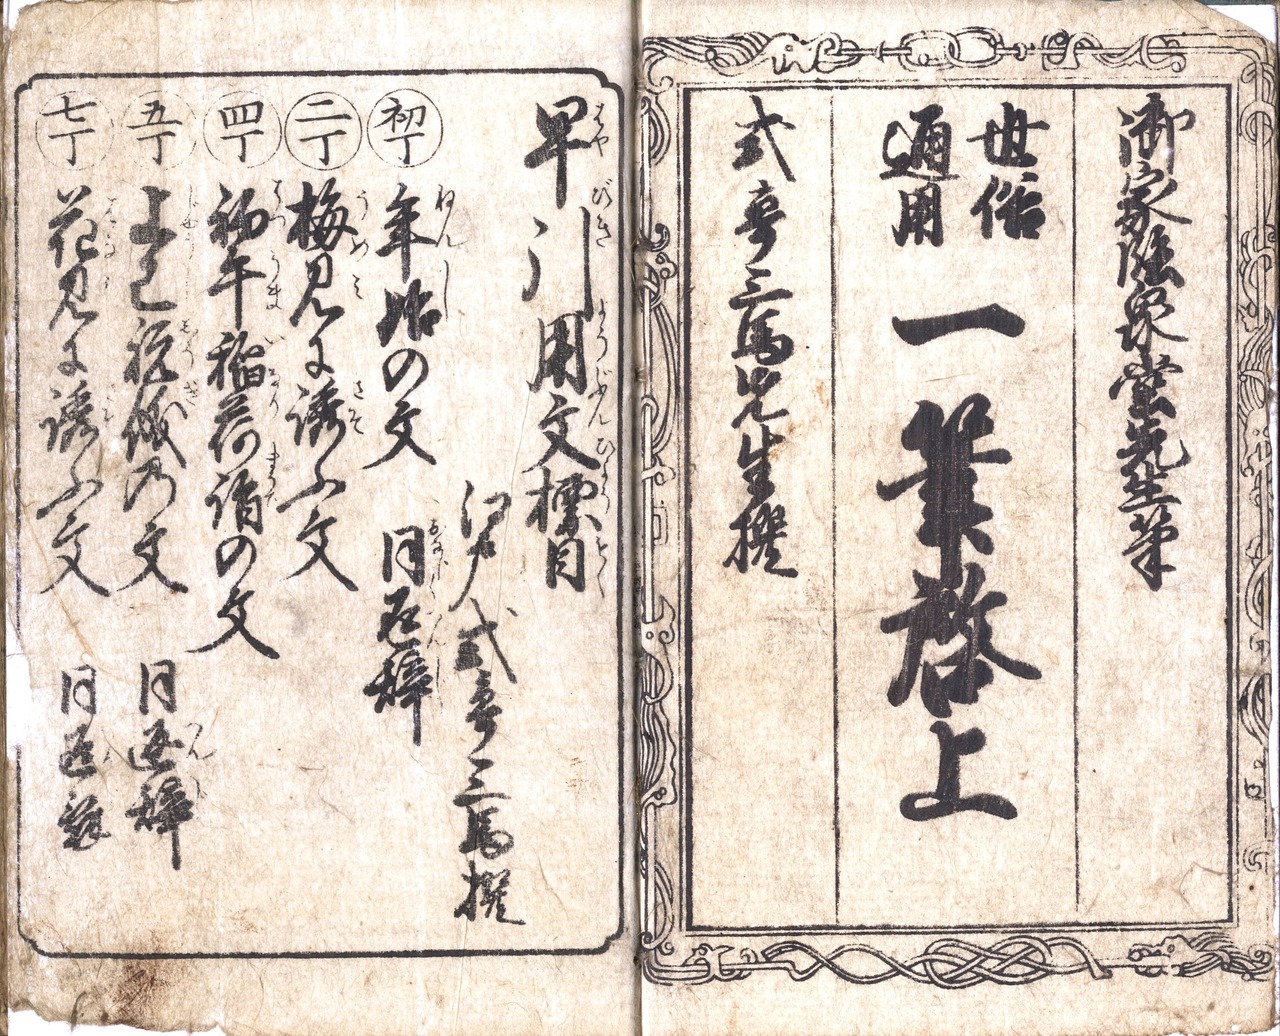 御家流象堂先生筆
世俗
通用
一筆啓上
式亭三馬先生撰
早引用文標目
江戸式亭三馬撰
初丁 年始の文 同返辞
二丁 梅見に誘ふ文
四丁 初午稲荷詣の文
五丁 上巳祝儀乃文 同返辞
七丁 花見に誘ふ文 同返辞